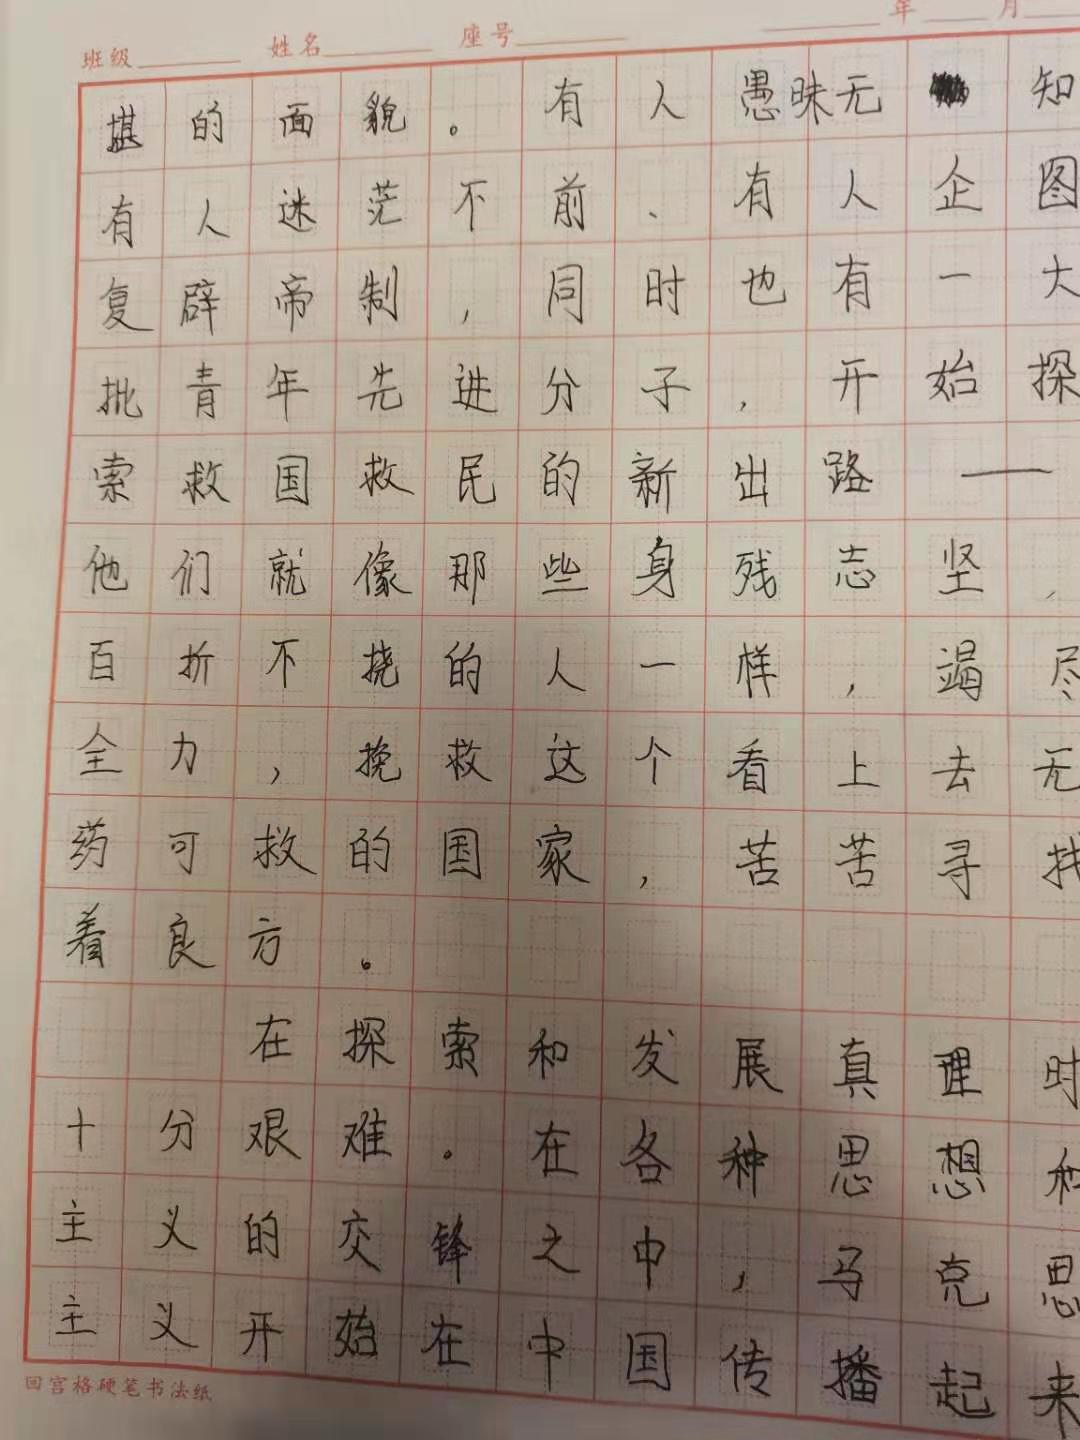 班级 姓名 座号 年 月
堪的面貌。有人愚昧无知
有人迷茫不前、有人企图
复辟帝制，同时也有一大
批青年先进分子，开始探
索救国救民的新出路——
他们就像那些身残志坚，
百折不挠的人一样，竭尽
全力，挽救这个看上去无
药可救的国家，苦苦寻找
着良方。
在探索和发展真理时
十分艰难。在各种思想和
主义的交锋之中，马克思
主义开始在中国传播起来
回宫格硬笔书法纸